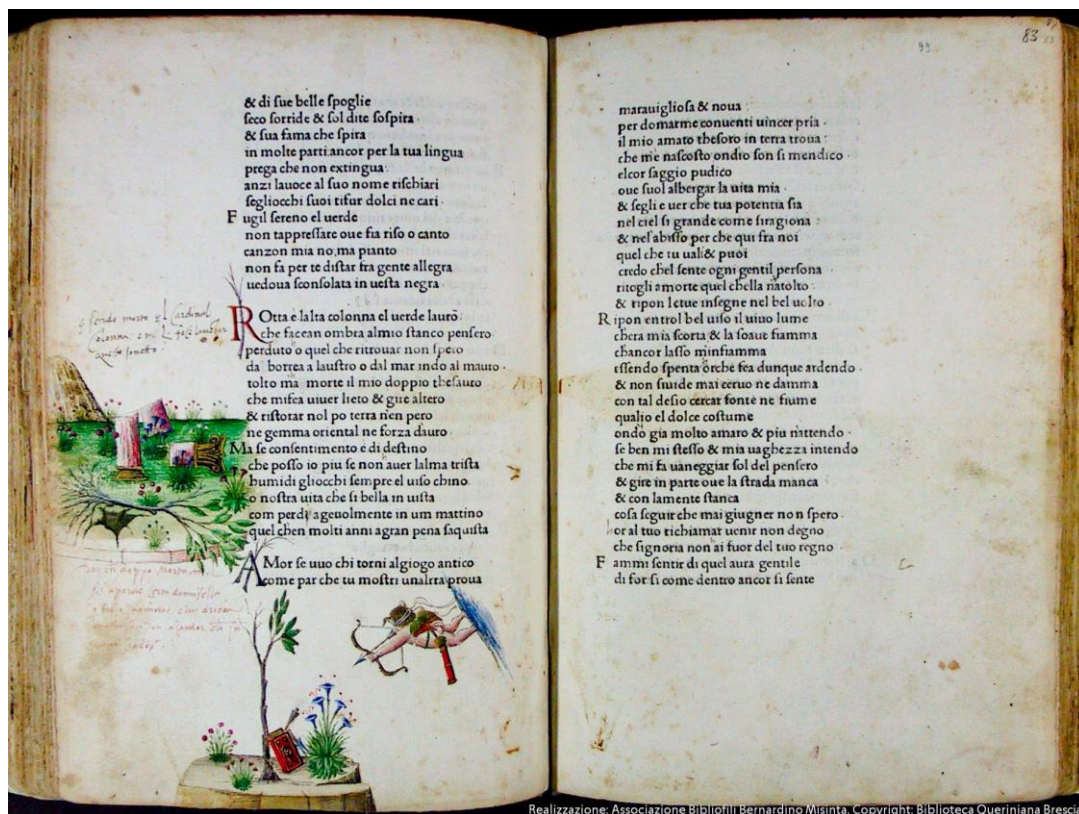 & di ſue belle ſpoglie
ſeco ſorride & ſol dite ſoſpira
& ſua fama che ſpira
in molte parti ancor per la tua lingua
prega che non extingua
anzi lauoce al ſuo nome riſchiari
ſegliocchi ſuoi tifur dolci ne cari
Fugil ſereno el uerde
non tappreſſare oue ſia riſo o canto
canzon mia no, ma pianto
non fa per te diſtar fra gente allegra
uedoua ſconſolata in ueſta negra
eſſendo morto el Cardinal
Colonna
queſto ſonetto
ROtta e lalta colonna el uerde lauro
che facean ombra almio ſtanco penſero
perduto o quel che ritrouar non ſpero
da borrea a lauſtro o dal mar indo al mauro
tolto ma morte il mio doppio theſauro
che mifea uiuer lieto & gire altero
& riſtorar nol po terra nen pero
ne gemma oriental ne forza dauro
Ma ſe conſentimento e di deſtino
che poſſo io piu ſe non auer lalma triſta
humidi gliocchi ſempre el uiſo chino
o noſtra uita che ſi bella in uiſta
com perde ageuolmente in um mattino
quel chen molti anni agran pena ſaquiſta
AMor ſe uuo chi torni algiogo antico
come par che tu moſtri unaltra proua
83
99
marauiglioſa & noua
per domarme conuenti uincer pria
il mio amato theſoro in terra troua
che me naſcoſto ondio ſon ſi mendico
elcor ſaggio pudico
oue ſuol albergar la uita mia
& ſegli e uer che tua potentia ſia
nel ciel ſi grande come ſiragiona
& nel abiſſo per che qui fra noi
quel che tu uali & puoi
credo chel ſente ogni gentil perſona
ritogli amorte quel chella natolto
& ripon letue inſegne nel bel uolto
Ripon entrol bel uiſo il uiuo lume
chera mia ſcorta & la ſoaue fiamma
chancor laſſo minfiamma
eſſendo ſpenta orche fea dunque ardendo
& non fiuide mai ceruo ne damma
con tal deſio cercar fonte ne fiume
qualio el dolce coſtume
ondo gia molto amaro & piu nattendo
ſe ben mi ſteſſo & mia uaghezza intendo
che mi fa uaneggiar ſol del penſero
& gire in parte oue la ſtrada manca
& con lamente ſtanca
coſa ſeguir che mai giugner non ſpero
or al tuo richiamar uenir non degno
che ſignoria non ai fuor del tuo regno
Fammi ſentir di quel aura gentile
di for ſi come dentro ancor ſi ſente
Realizzazione: Associazione Bibliofili Bernardino Misinta. Copyright: Biblioteca Queriniana Brescia